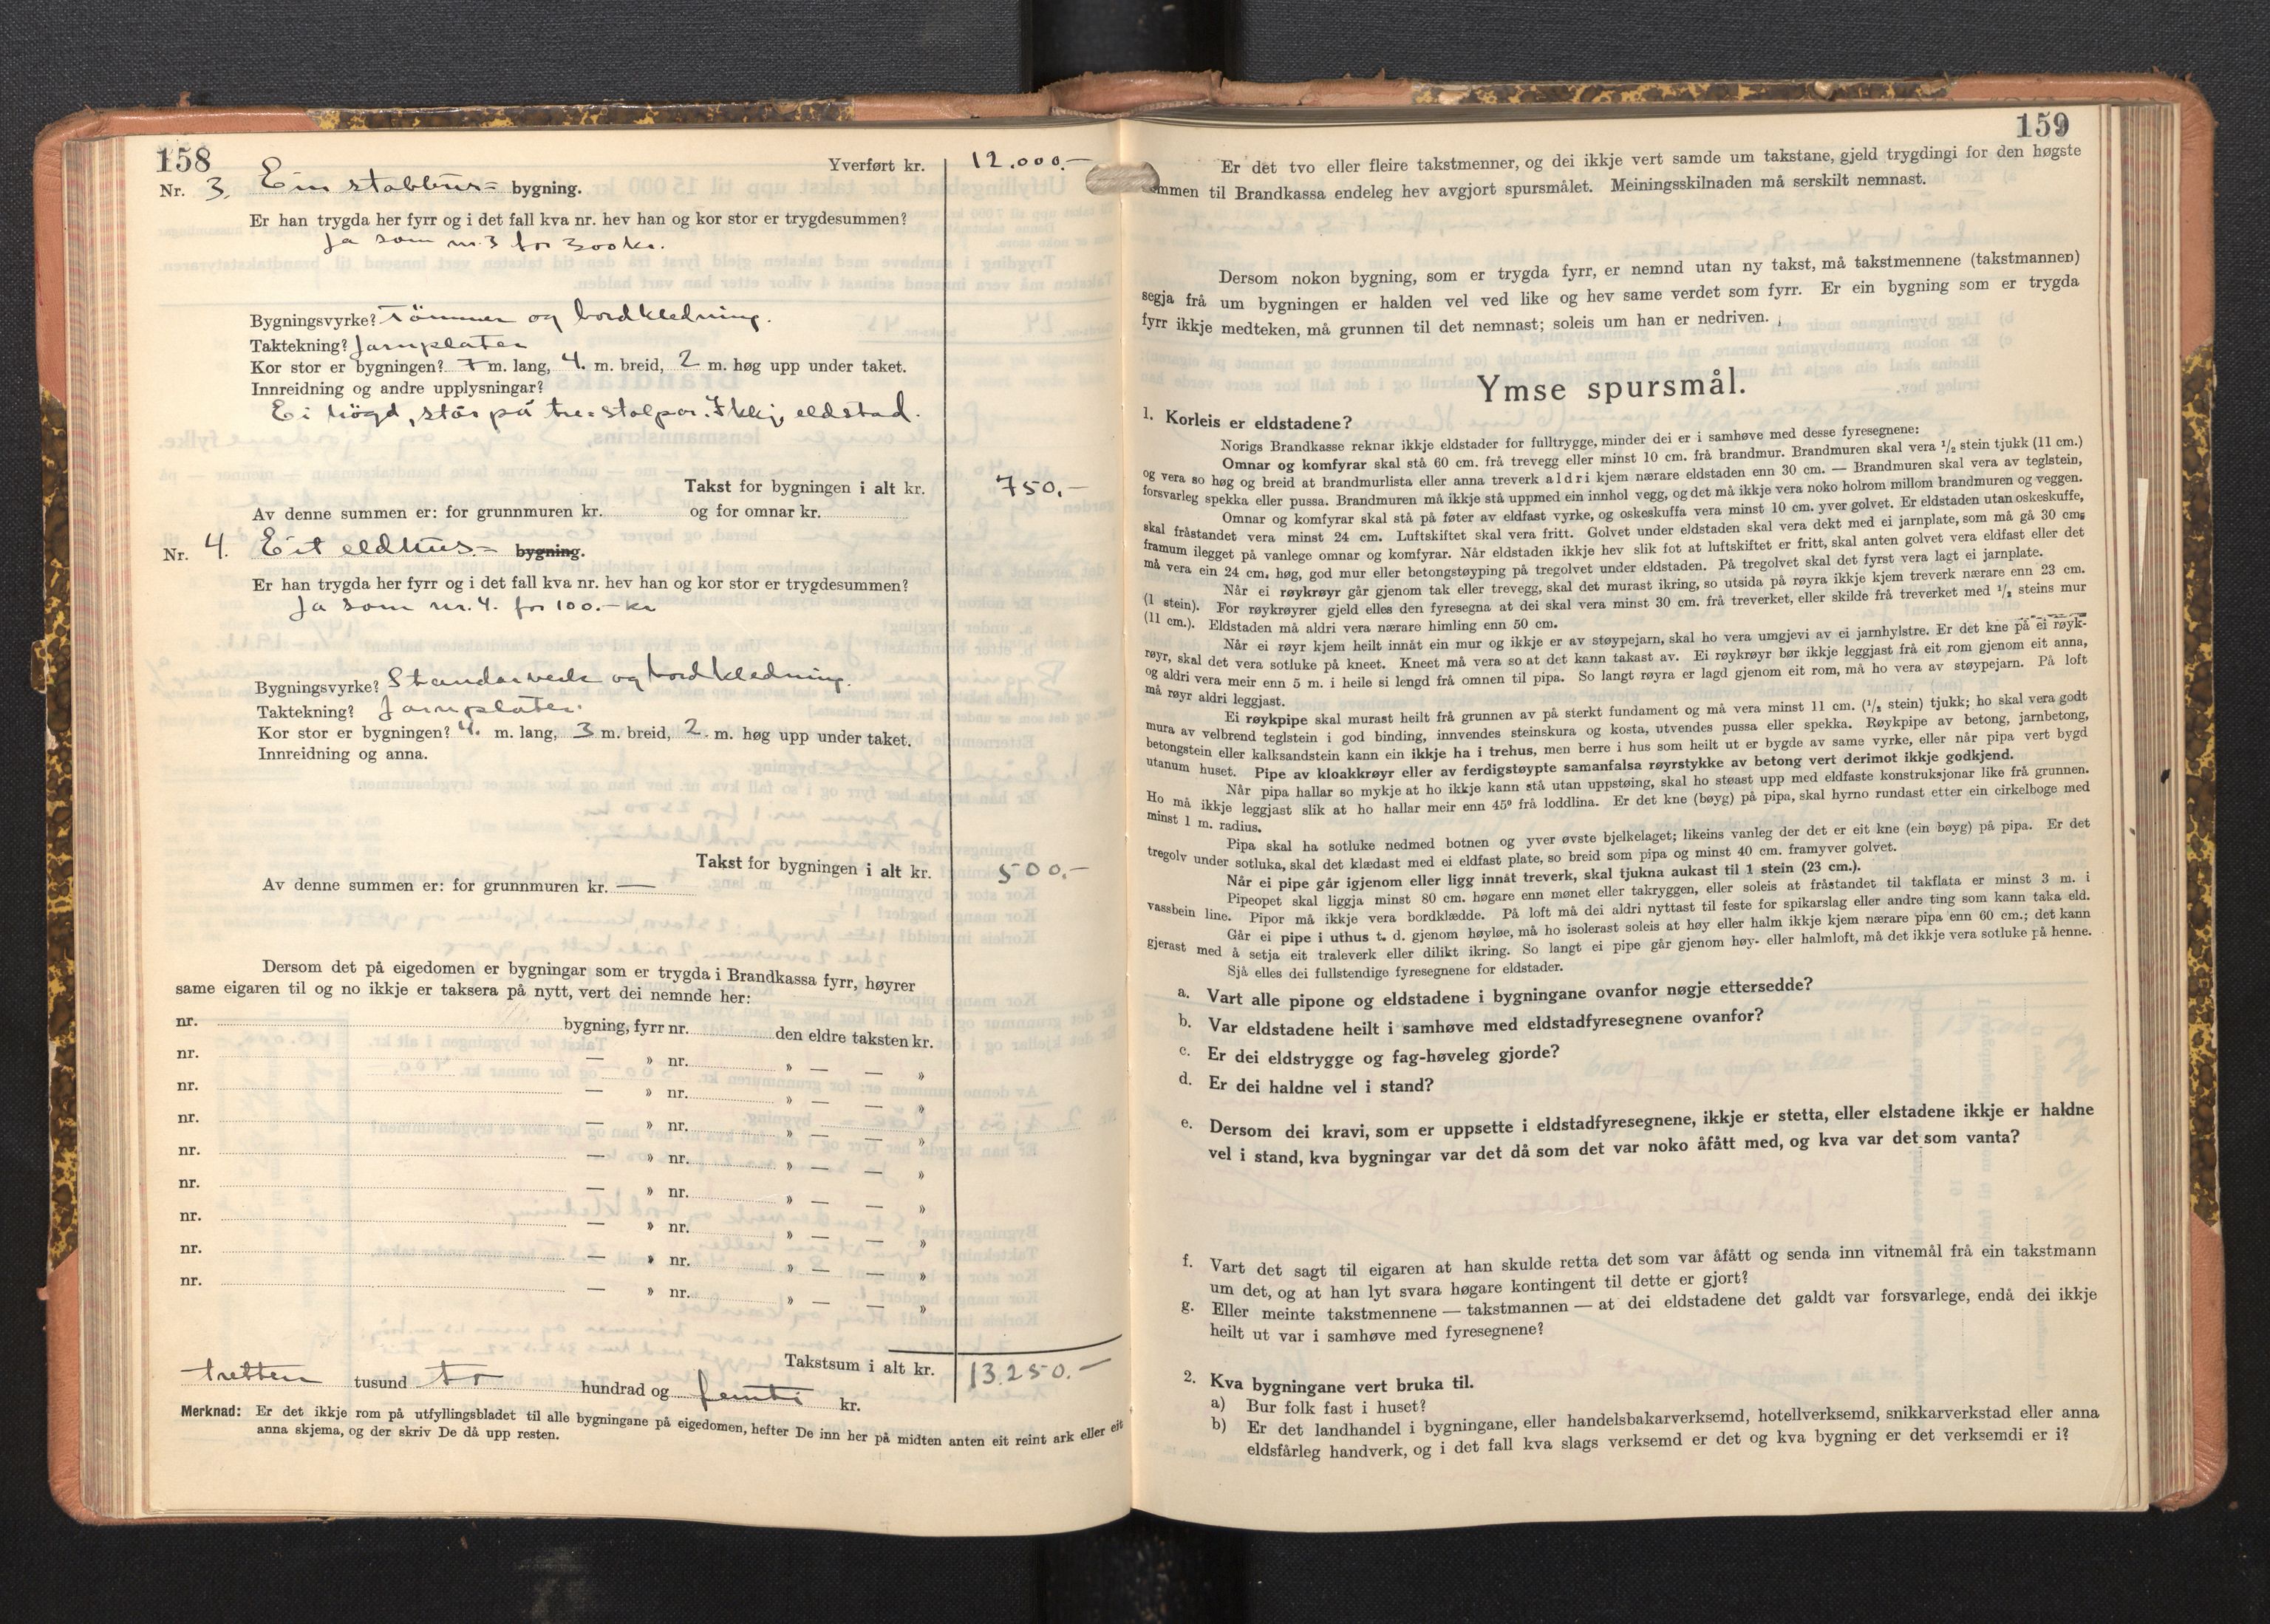 158
Yverført kr. 12.000.-
Nr. 3. Ein stabburs= bygning.
Er han trygda her fyrr og i det fall kva nr. hev han og kor stor er trygdesummen?
Ja som nr. 3 for 300 kr.
Bygningsvyrke? Tömmer og bordkledning.
Taktekning? Jarnplater
Kor stor er bygningen? 7 m. lang, 4. m. breid, 2 m. høg upp under taket.
Innreidning og andre upplysningar?
Ei högd, står på tre-stolpar. Ikkje eldstad.
Takst for bygningen i alt kr. 750.-
Av denne summen er: for grunnmuren kr. og for omnar kr.
Nr. 4. Eit eldhus.= bygning.
Er han trygda her fyrr og i det fall kva nr. hev han og kor stor er trygdesummen?
Ja som nr. 4. for 100.- kr
Bygningsvyrke? Standarverk og bordkledning.
Taktekning? Jarnplater.
Kor stor er bygningen? 4. m. lang, 3 m. breid, 2. m. høg upp under taket.
Innreidning og anna.
Takst for bygningen i alt kr. 500.-
Av denne summen er: for grunnmuren kr. —
Dersom det på eigedomen er bygningar som er trygda i Brandkassa fyrr, høyrer
same eigaren til og no ikkje er taksera på nytt, vert dei nemnde her:
nr. bygning, fyrr nr. den eldre taksten kr.
nr. — » nr. » — — »
nr. — » nr. » — — »
nr. — » nr. » — — »
nr. — » nr. » — — »
nr. — » nr. » — — »
nr. — » nr. » — — »
nr. — » nr. » — — »
nr. — » nr. » — — »
Takstsum i alt kr. 13.250.-
tretten tusund to hundrad og femti kr.
Merknad: Er det ikkje rom på utfyllingsbladet til alle bygningane på eigedomen, hefter De inn her på midten anten eit reint ark eller eit
anna skjema, og der skriv De då upp resten.
159
Er det tvo eller fleire takstmenner, og dei ikkje vert samde um takstane, gjeld trygdingi for den høgste
ommen til Brandkassa endeleg hev avgjort spursmålet. Meiningsskilnaden må serskilt nemnast.
Dersom nokon bygning, som er trygda fyrr, er nemnd utan ny takst, må takstmennene (takstmannen)
segja frå um bygningen er halden vel ved like og hev same verdet som fyrr. Er ein bygning som er trygda
fyrr ikkje medteken, må grunnen til det nemnast; soleis um han er nedriven.
Ymse spursmål.
1. Korleis er eldstadene?
Norigs Brandkasse reknar ikkje eldstader for fulltrygge, minder dei er i samhøve med desse fyresegnene:
Omnar og komfyrar skal stå 60 cm. frå trevegg eller minst 10 cm. frå brandmur. Brandmuren skal vera 1/2 stein tjukk (11 cm.)
og vera so høg og breid at brandmurlista eller anna treverk aldri kjem nærare eldstaden enn 30 cm. — Brandmuren skal vera av teglstein,
forsvarleg spekka eller pussa. Brandmuren må ikkje stå uppmed ein innhol vegg, og det må ikkje vera noko holrom millom brandmuren og veggen.
Omnar og komfyrar skal stå på føter av eldfast vyrke, og oskeskuffa vera minst 10 cm. yver golvet. Er eldstaden utan oskeskuffe,
skal fråstandet vera minst 24 cm. Luftskiftet skal vera fritt. Golvet under eldstaden skal vera dekt med ei jarnplate, som må gå 30 cms
framum ilegget på vanlege omnar og komfyrar. Når eldstaden ikkje hev slik fot at luftskiftet er fritt, skal anten golvet vera eldfast eller det
må vera ein 24 cm. høg, god mur eller betongstøyping på tregolvet under eldstaden. På tregolvet skal det fyrst vera lagt ei jarnplate.
Når ei røykrøyr går gjenom tak eller trevegg, skal det murast ikring, so utsida på røyra ikkje kjem treverk nærare enn 23 cm.
(1 stein). For røykrøyrer gjeld elles den fyresegna at dei skal vera minst 30 cm. frå treverket, eller skilde frå treverket med 1/2 steins mur
(11 cm.). Eldstaden må aldri vera nærare himling enn 50 cm.
Når ei røyr kjem heilt innåt ein mur og ikkje er av støypejarn, skal ho vera umgjevi av ei jarnhylstre. Er det kne på ei røyk-
røyr, skal det vera sotluke på kneet. Kneet må vera so at det kann takast av. Ei røykrøyr bør ikkje leggjast frå eit rom gjenom eit anna,
og aldri vera meir enn 5 m. i heile si lengd frå omnen til pipa. So langt røyra er lagd gjenom eit rom, må ho vera av støypejarn. På loft
må røyr aldri leggjast.
Ei røykpipe skal murast heilt frå grunnen av på sterkt fundament og må vera minst 11 cm. (1/2 stein) tjukk; ho skal vera godt
mura av velbrend teglstein i god binding, innvendes steinskura og kosta, utvendes pussa eller spekka. Røykpipe av betong, jarnbetong,
betongstein eller kalksandstein kann ein ikkje ha i trehus, men berre i hus som heilt ut er bygde av same vyrke, eller når pipa vert bygd
utanum huset. Pipe av kloakkrøyr eller av ferdigstøypte samanfalsa røyrstykke av betong vert derimot ikkje godkjend.
Når pipa hallar so mykje at ho ikkje kann stå utan uppstøing, skal ho støast upp med eldfaste konstruksjonar like frå grunnen.
Ho må ikkje leggjast slik at ho hallar meir enn 45° frå loddlina. Er det kne (bøyg) på pipa, skal hyrno rundast etter ein cirkelboge med
minst 1 m. radius.
Pipa skal ha sotluke nedmed botnen og yver øvste bjelkelaget; likeins vanleg der det er eit kne (ein bøyg) på pipa. Er det
tregolv under sotluka, skal det klædast med ei eldfast plate, so breid som pipa og minst 40 cm. framyver golvet.
Når ei pipe går igjenom eller ligg innåt treverk, skal tjukna aukast til 1 stein (23 cm.).
Pipeopet skal liggja minst 80 cm. høgare enn mønet eller takryggen, eller soleis at fråstandet til takflata er minst 3 m. i
vassbein line. Pipor må ikkje vera bordklædde. På loft må dei aldri nyttast til feste for spikarslag eller andre ting som kann taka eld.
Går ei pipe i uthus t. d. gjenom høyløe, må ho isolerast soleis at høy eller halm ikkje kjem nærare pipa enn 60 cm.; det kann
gjerast med å setja eit traleverk eller dilikt ikring. So langt ei pipe går gjenom høy- eller halmloft, må det ikkje vera sotluke på henne.
Sjå elles dei fullstendige fyresegnene for eldstader.
a. Vart alle pipone og eldstadene i bygningane ovanfor nøgje ettersedde?
b. Var eldstadene heilt i samhøve med eldstadfyresegnene ovanfor?
c. Er dei eldstrygge og fag-høveleg gjorde?
d. Er dei haldne vel i stand?
e. Dersom dei kravi, som er uppsette i eldstadfyresegnene, ikkje er stetta, eller elstadene ikkje er haldne
vel i stand, kva bygningar var det då som det var noko åfått med, og kva var det som vanta?
f. Vart det sagt til eigaren at han skulde retta det som var åfått og senda inn vitnemål frå ein takstmann
um det, og at han lyt svara høgare kontingent til dette er gjort?
g. Eller meinte takstmennene — takstmannen — at dei eldstadene det galdt var forsvarlege, endå dei ikkje
heilt ut var i samhøve med fyresegnene?
2. Kva bygningane vert bruka til.
a) Bur folk fast i huset?
b) Er det landhandel i bygningane, eller handelsbakarverksemd, hotellverksemd, snikkarverkstad eller anna
eldsfårleg handverk, og i det fall kva slags verksemd er det og kva bygning er det verksemdi er i?